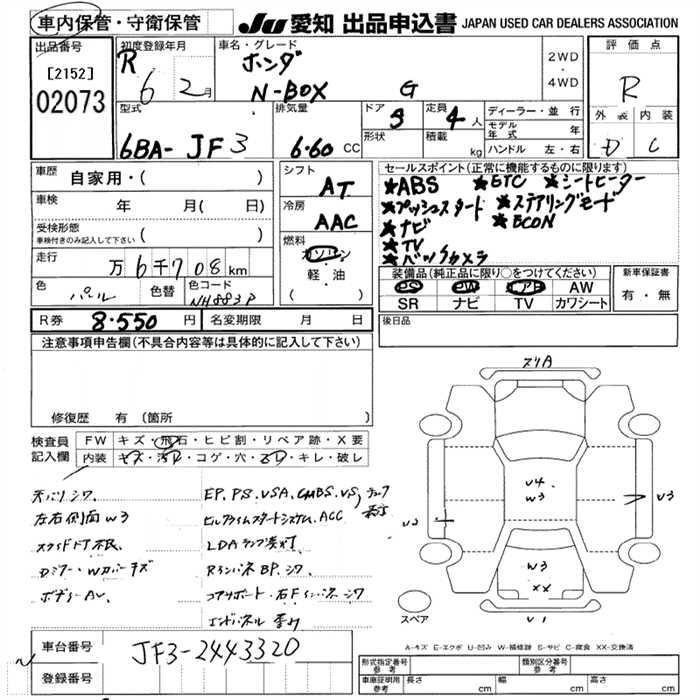 車内保管・守衛保管
JU 愛知 出品申込書 JAPAN USED CAR DEALERS ASSOCIATION
出品番号
[2152]
02073
初度登録年月
R 6 2月
車名・グレード
ホンダ
N-BOX G
2WD
・
4WD
評価点
R
外装 内装
D C
型式
6BA- JF3
排気量
6・60 CC
ドア
5
形状
定員
4人
積載
kg
ディーラー・並行
モデル年式 年
ハンドル 左・右
車歴
自家用・( )
車検
年 月( 日)
受検形態
車検付きのみ記入して下さい ( )
走行
万6千708km
色
パール
色替
色コード
NH883P
シフト
AT
冷房
AAC
燃料
ガソリン
軽・油
( )
セールスポイント(正常に機能するものに限ります)
★ABS ★ETC ★シートヒーター
★プッシュスタート ★ステアリングモード
★ナビ ★ECON
★TV
★バックカメラ
装備品(純正品に限り○をつけてください)
PS PW エアB AW
SR ナビ TV カワシート
新車保証書
有・無
R券 8・550円
名変期限 月 日
後日品
注意事項申告欄(不具合内容等は具体的に記入して下さい)
修復歴 有(箇所 )
検査員記入欄
FW キズ・飛石・ヒビ割・リペア跡・X要
内装 キズ・汚れ・コゲ・穴・・キレ・破し
天バリシワ
左右側面W3
スライドドア不良
Dミラー・Wカバーキズ
ボデーAU
EP,PS,VSA,CMBS,VS,チェック
表示
ビルアイムスタートシステム,ACC
LDAランプ点灯
Rインパネ BP,シワ
コアサポート・右Fインパネ シワ
エンドパネル 歪み
スリA
U4
W3
U2
U3
W3
XX
U1
スペア
A-キズ E-エクボ U-凹み W-補修跡 S-サビ C-腐食 XX-交換済
車台番号 JF3-2443320
登録番号
形式指定番号
参考
類別区分番号
参考
車庫証明用
参考
長さ cm 幅 cm 高さ cm